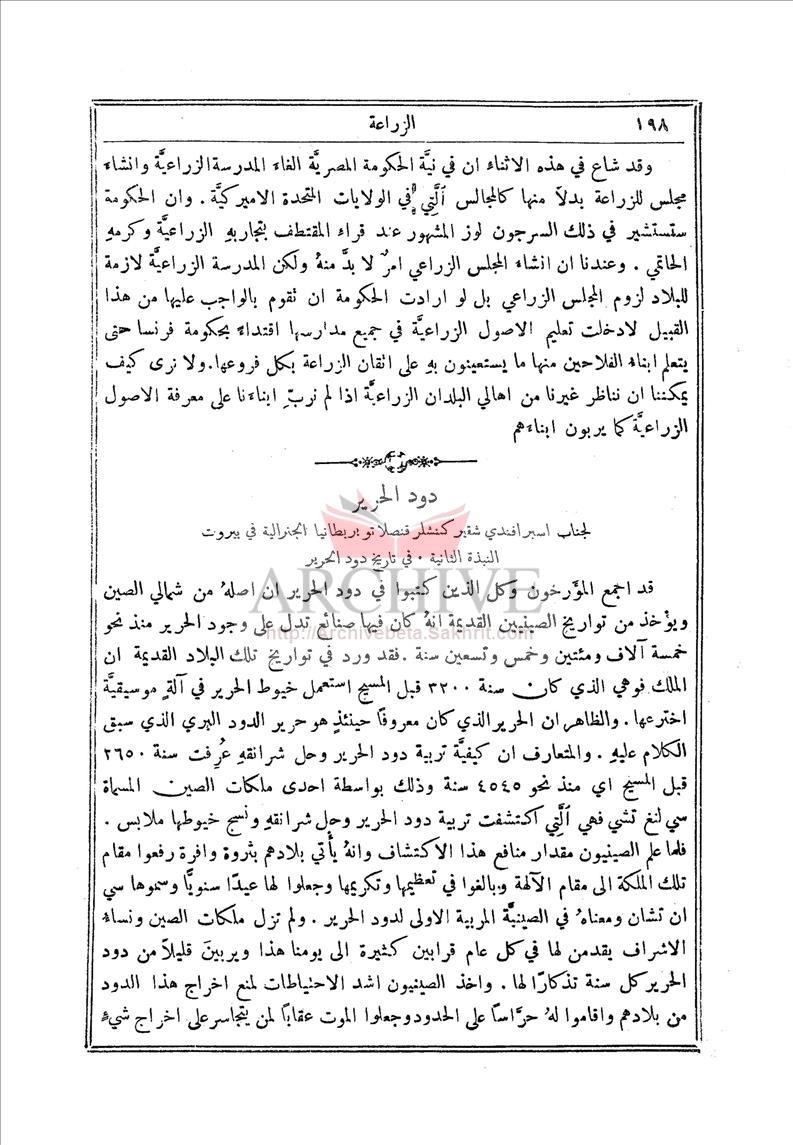 ١٩٨
الزراعة
وقد شاع في هذه الاثناء ان في نيَّة الحكومة المصريَّة الغاء المدرسة الزراعيَّة وانشاء
مجلس للزراعة بدلاً منها كالمجالس ٱلَّتِي في الولايات المتحدة الاميركيَّة . وان الحكومة
ستستشير في ذلك السرجون لوز المشهور عند قراء المقتطف بتجاربهِ الزراعيَّة وكرمهِ
الحاتمي . وعندنا ان انشاء المجلس الزراعي امرٌ لا بدَّ منهُ ولكن المدرسة الزراعيَّة لازمة
للبلاد لزوم المجلس الزراعي بل لو ارادت الحكومة ان تقوم بالواجب عليها من هذا
القبيل لادخلت تعليم الاصول الزراعيَّة في جميع مدارسها اقتداءً بحكومة فرنسا حتى
يتعلم ابناءُ الفلاحين منها ما يستعينون بهِ على اتقان الزراعة بكل فروعها. ولا نرى كيف
يمكننا ان نناظر غيرنا من اهالي البلدان الزراعيَّة اذا لم نربِّ ابناءَنا على معرفة الاصول
الزراعيَّة كما يربون ابناءَهم
دود الحرير
لجناب اسبر افندي شقير كنشلر قنصلاتو بريطانيا الجنرالية في بيروت
النبذة الثانية . في تاريخ دود الحرير
قد اجمع المؤَرخون وكل الذين كتبوا في دود الحرير ان اصلهُ من شمالي الصين
ويؤْخذ من تواريخ الصينيين القديمة انهُ كان فيها صنائع تدل على وجود الحرير منذ نحو
خمسة آلاف ومئتين وخمس وتسعين سنة . فقد ورد في تواريخ تلك البلاد القديمة ان
الملك فوهي الذي كان سنة ٣٢٠٠ قبل المسيح استعمل خيوط الحرير في آلةٍ موسيقيَّة
اخترعها . والظاهر ان الحرير الذي كان معروفًا حينئذٍ هو حرير الدود البري الذي سبق
الكلام عليهِ . والمتعارف ان كيفيَّة تربية دود الحرير وحل شرانقهِ عُرفت سنة ٢٦٥٠
قبل المسيح اي منذ نحو ٤٥٤٥ سنة وذلك بواسطة احدى ملكات الصين المسماة
سي لنغ تشي فهي ٱلَّتِي اكتشفت تربية دود الحرير وحل شرانقهِ ونسج خيوطها ملابس .
فلما علم الصينيون مقدار منافع هذا الاكتشاف وانهُ يأْتي بلادهم بثروة وافرة رفعوا مقام
تلك الملكة الى مقام الآلهة وبالغوا في تعظيمها وتكريمها وجعلوا لها عيدًا سنويًّا وسموها سي
ان تشان ومعناهُ في الصينيَّة المربية الاولى لدود الحرير . ولم تزل ملكات الصين ونساءُ
الاشراف يقدمن لها في كل عام قرابين كثيرة الى يومنا هذا ويربينَ قليلاً من دود
الحرير كل سنة تذكارًا لها . واخذ الصينيون اشد الاحتياطات لمنع اخراج هذا الدود
من بلادهم واقاموا لهُ حرَّاسًا على الحدود وجعلوا الموت عقابًا لمن يتجاسر على اخراج شيءٍ
ARCHIVE
http://Archivebeta.Sakhrit.com